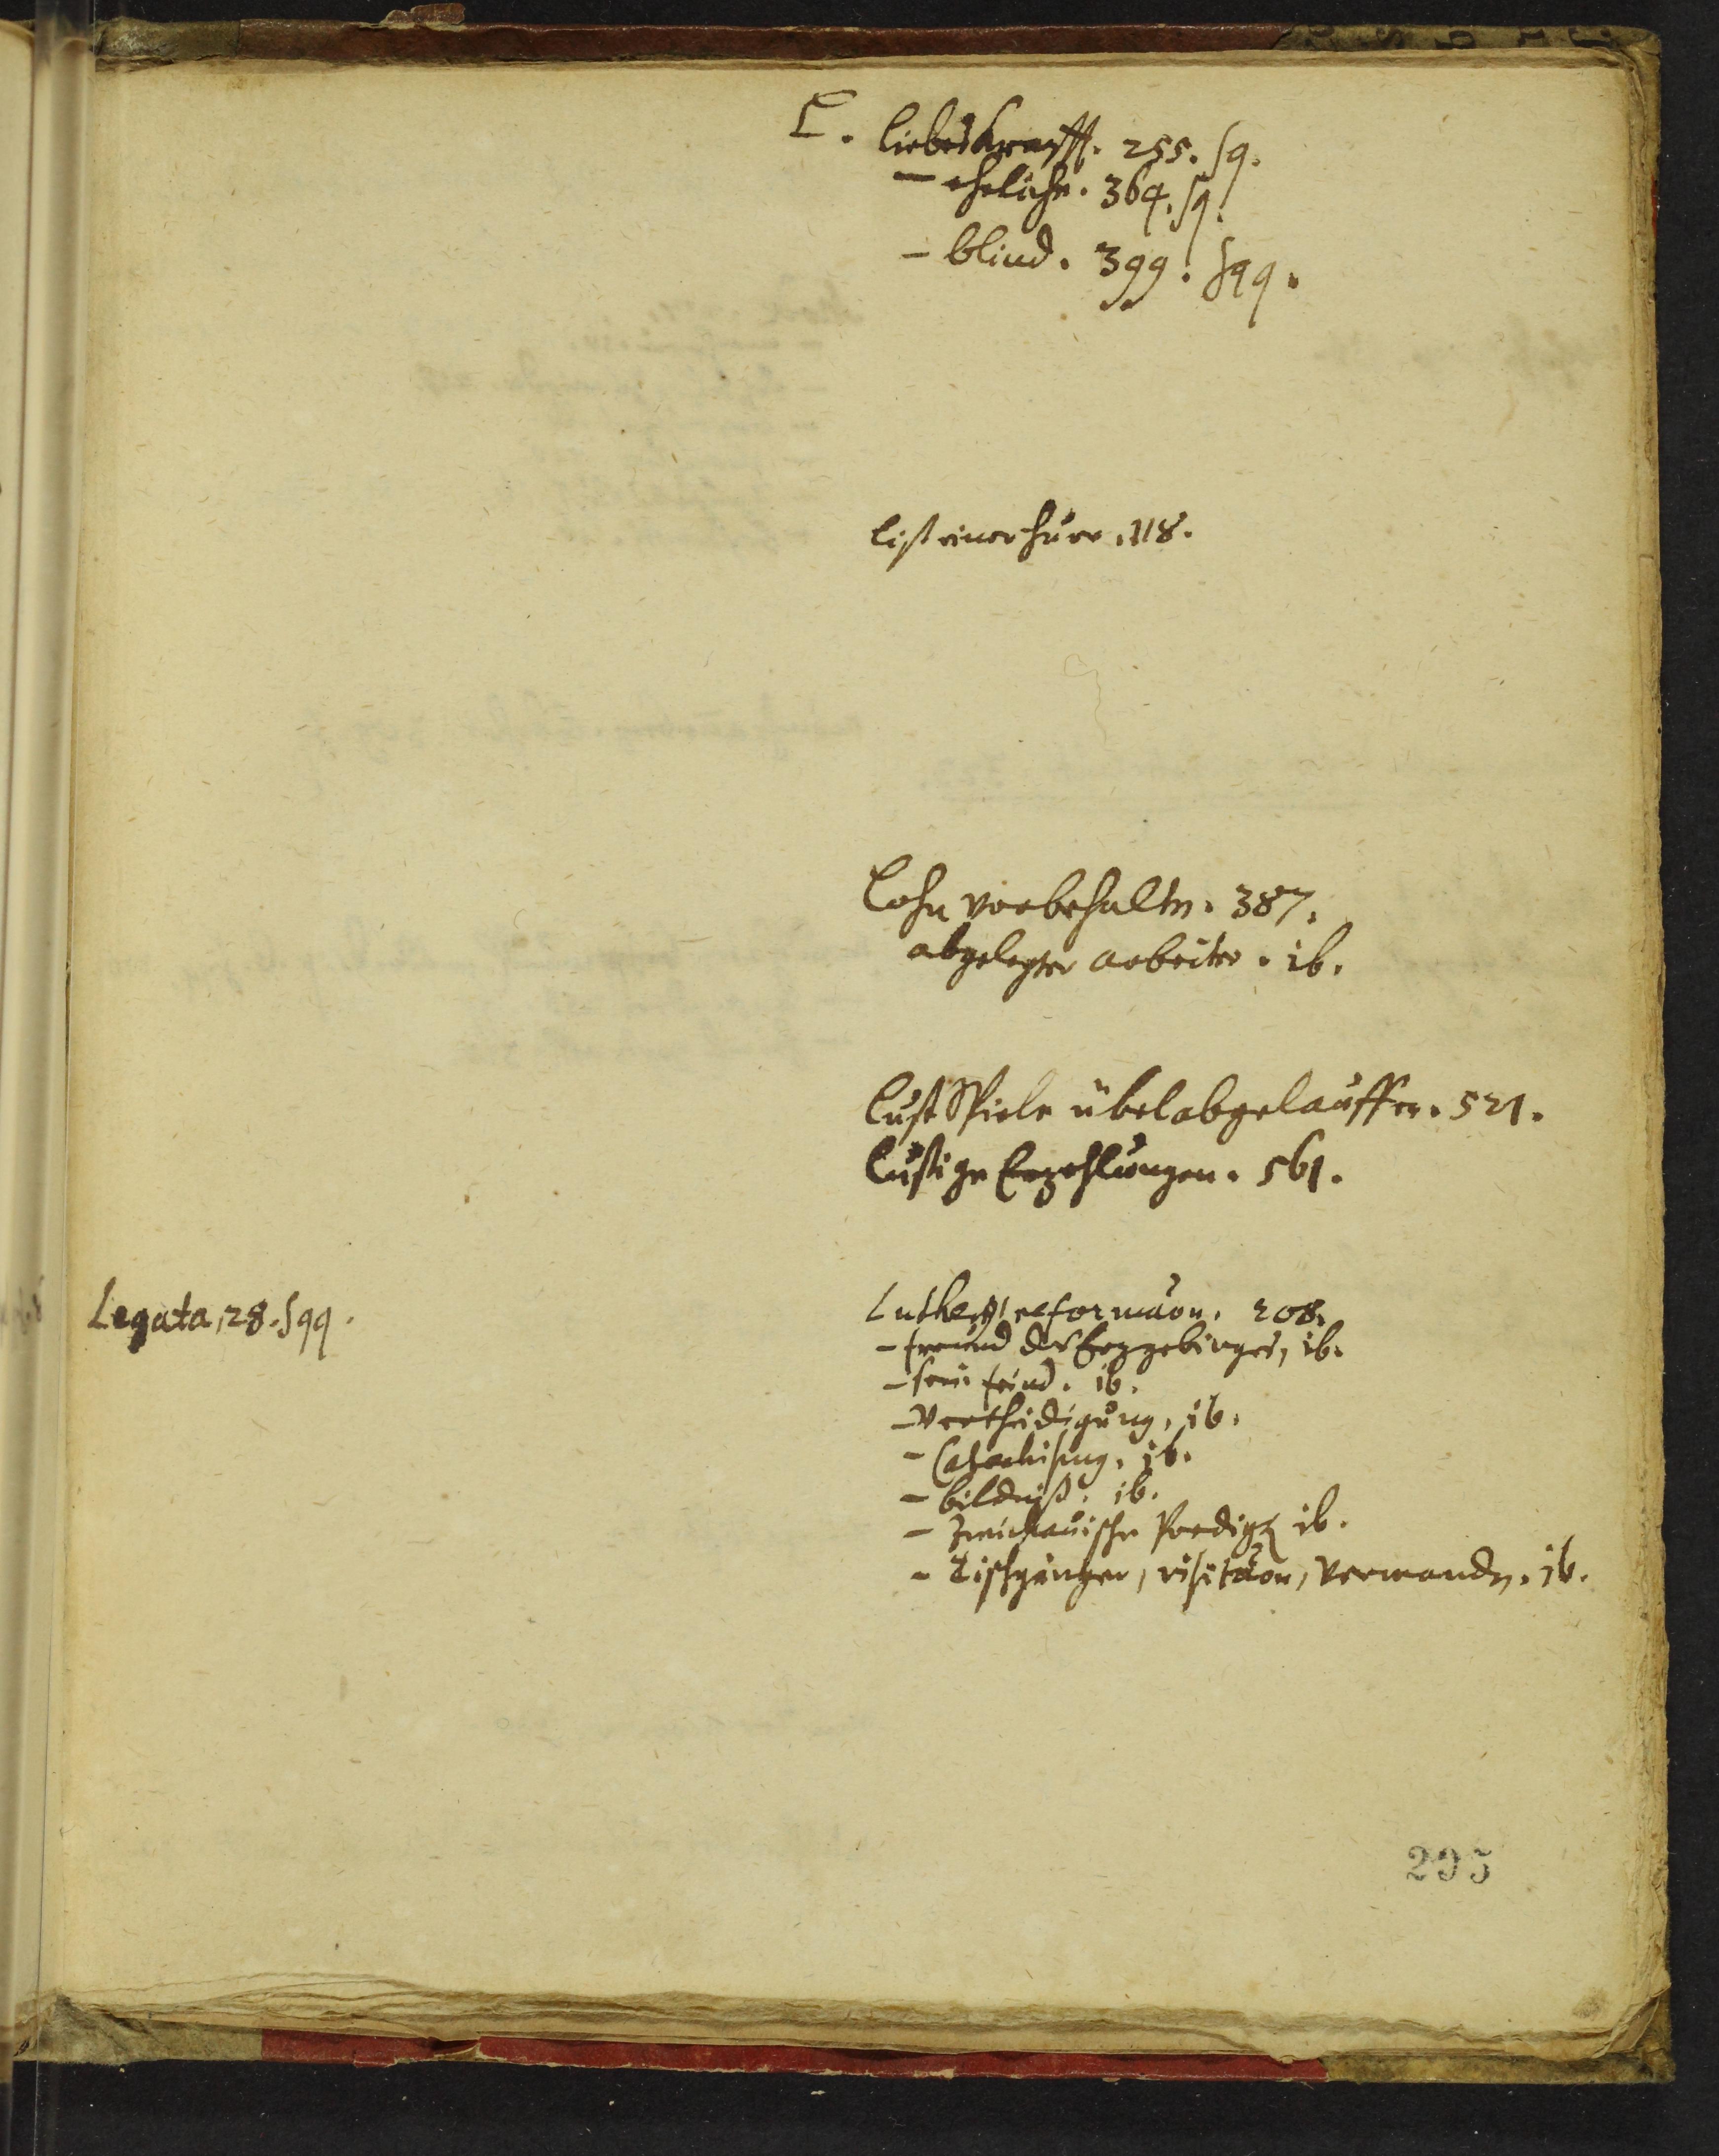 L.
Liebeskrafft. 255. sq.
– eheliche. 364. sq.
– blind. 399. sqq.
List einer hure. 118.
Lohn vorbehalten. 387.
abgelegter arbeiter. ib.
Lust Spiele übel abgelauffen. 521.
Lustige Erzehlungen. 561.
Legata, 28. sqq.
Lutheri reformaon. 208.
– freund des Erzgebirges, ib.
– sein feind. ib.
– Vertheidigung, ib.
– Catechismg. ib.
– bildniß. ib.
– Zwickauische Predigt ib.
– Tischgänger, visitaon, Verwandn. ib.
295